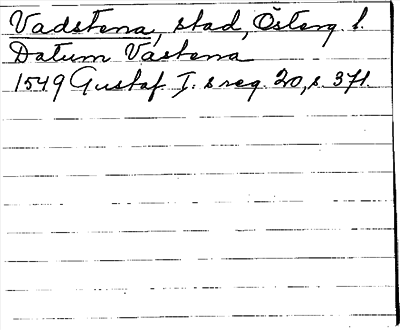 Vadstena, stad, Österg. l.
Datum Vastena
1549 Gustaf I:s reg. 20, s. 371.